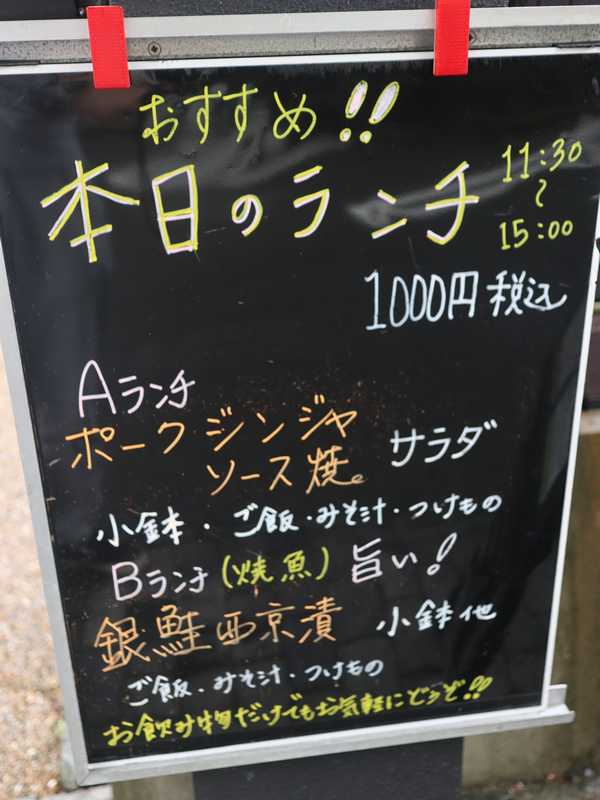 おすすめ!!
本日のランチ
11:30
~
15:00
1000円 税込
Aランチ
ポーク ジンジャ
ソース 焼。
サラダ
小鉢・ご飯・みそ汁・つけもの
Bランチ(焼魚) 旨い!
銀鮭西京漬 小鉢他
ご飯・みそ汁・つけもの
お飲み物だけでもお気軽にどうぞ!!